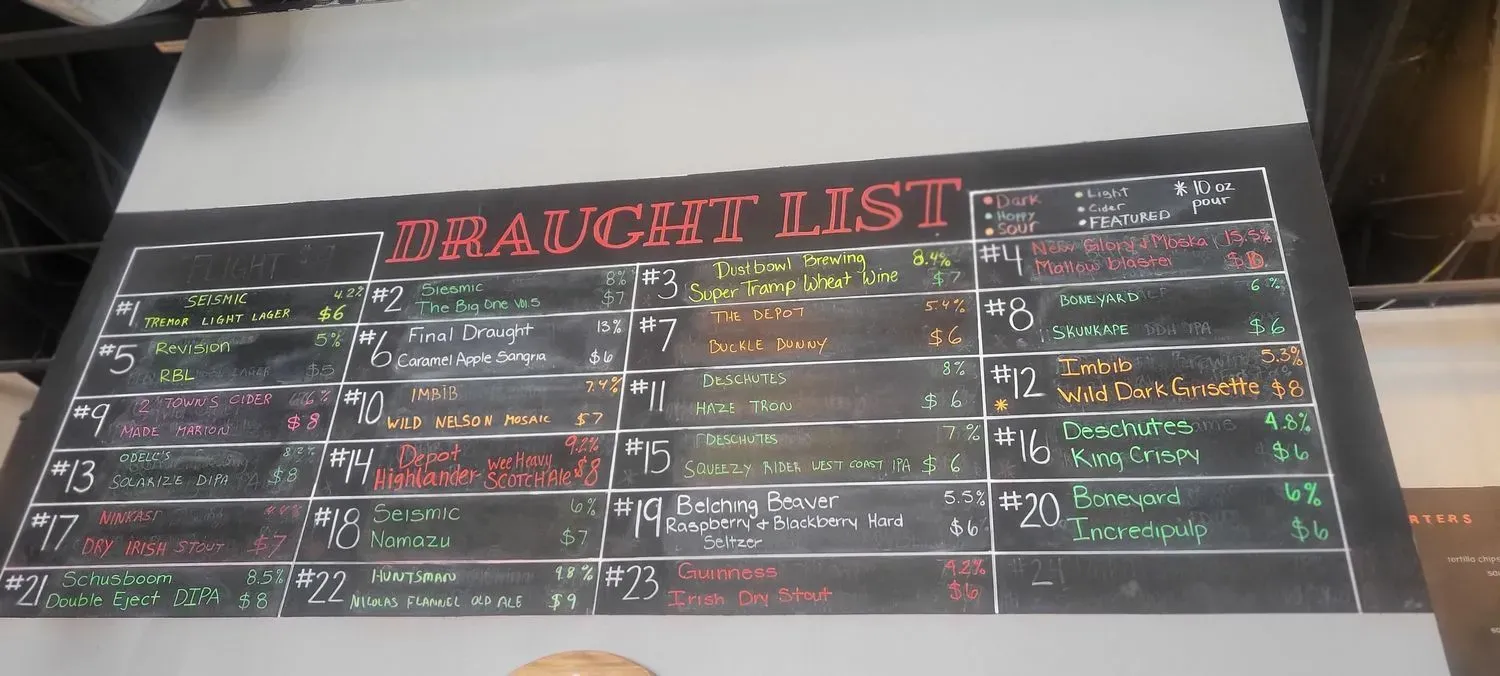 DRAUGHT LIST
Dark
Hoppy
Sour
Light
Cider
FEATURED
* 10 oz
pour
FLIGHT
#1 SEISMIC 4.2%
TREMOR LIGHT LAGER $6
#2 Siesmic 8%
The Big One Vol.5 $7
#3 Dustbowl Brewing 8.4%
Super Tramp Wheat Wine $7
#4 New Glory Moska 15.5%
Mallow blaster
#5 Revision 5%
RBL $5
#6 Final Draught 13%
Caramel Apple Sangria $6
#7 THE DEPOT 5.4%
BUCKLE BUNNY $6
#8 BONEYARD 6%
SKUNKAPE DDH IPA $6
#9 2 TOWNS CIDER 6%
MADE MARION $8
#10 IMBIB 7.4%
WILD NELSON MOSAIC $7
#11 DESCHUTES 8%
HAZE TRON $6
#12 Imbib 5.3%
* Wild Dark Grisette $8
#13 ODELL'S 8.2%
SOLARIZE DIPA $8
#14 Depot 9.2%
Highlander Wee Heavy SCOTCH Ale $8
#15 DESCHUTES 7%
SQUEEZY RIDER WEST COAST IPA $6
#16 Deschutes 4.8%
King Crispy $6
#17 NINKASI
DRY IRISH STOUT $7
#18 Seismic 6%
Namazu $7
#19 Belching Beaver 5.5%
Raspberry + Blackberry Hard $6
Seltzer
#20 Boneyard 6%
Incredipulp $6
#21 Schusboom 8.5%
Double Eject DIPA $8
#22 HUNTSMAN 9.8%
NICOLAS FLANNEL OLD ALE $9
#23 Guinness 4.2%
Irish Dry Stout $6
#24
RTERS
tortilla chips